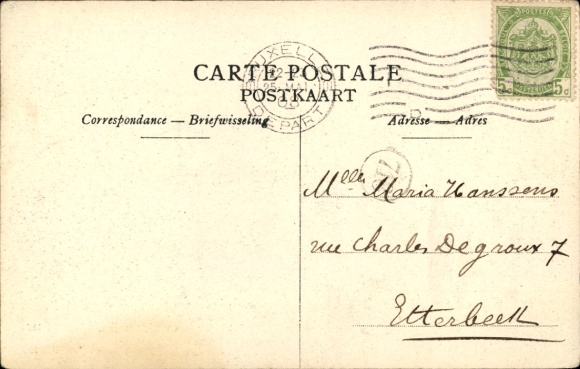 CARTE POSTALE
POSTKAART
Correspondance — Briefwisseling
Adresse — Adres
25 MAI
DEPART
5c 5c
Mlle Maria Hanssens
rue Charles Degroux 7
Etterbeek